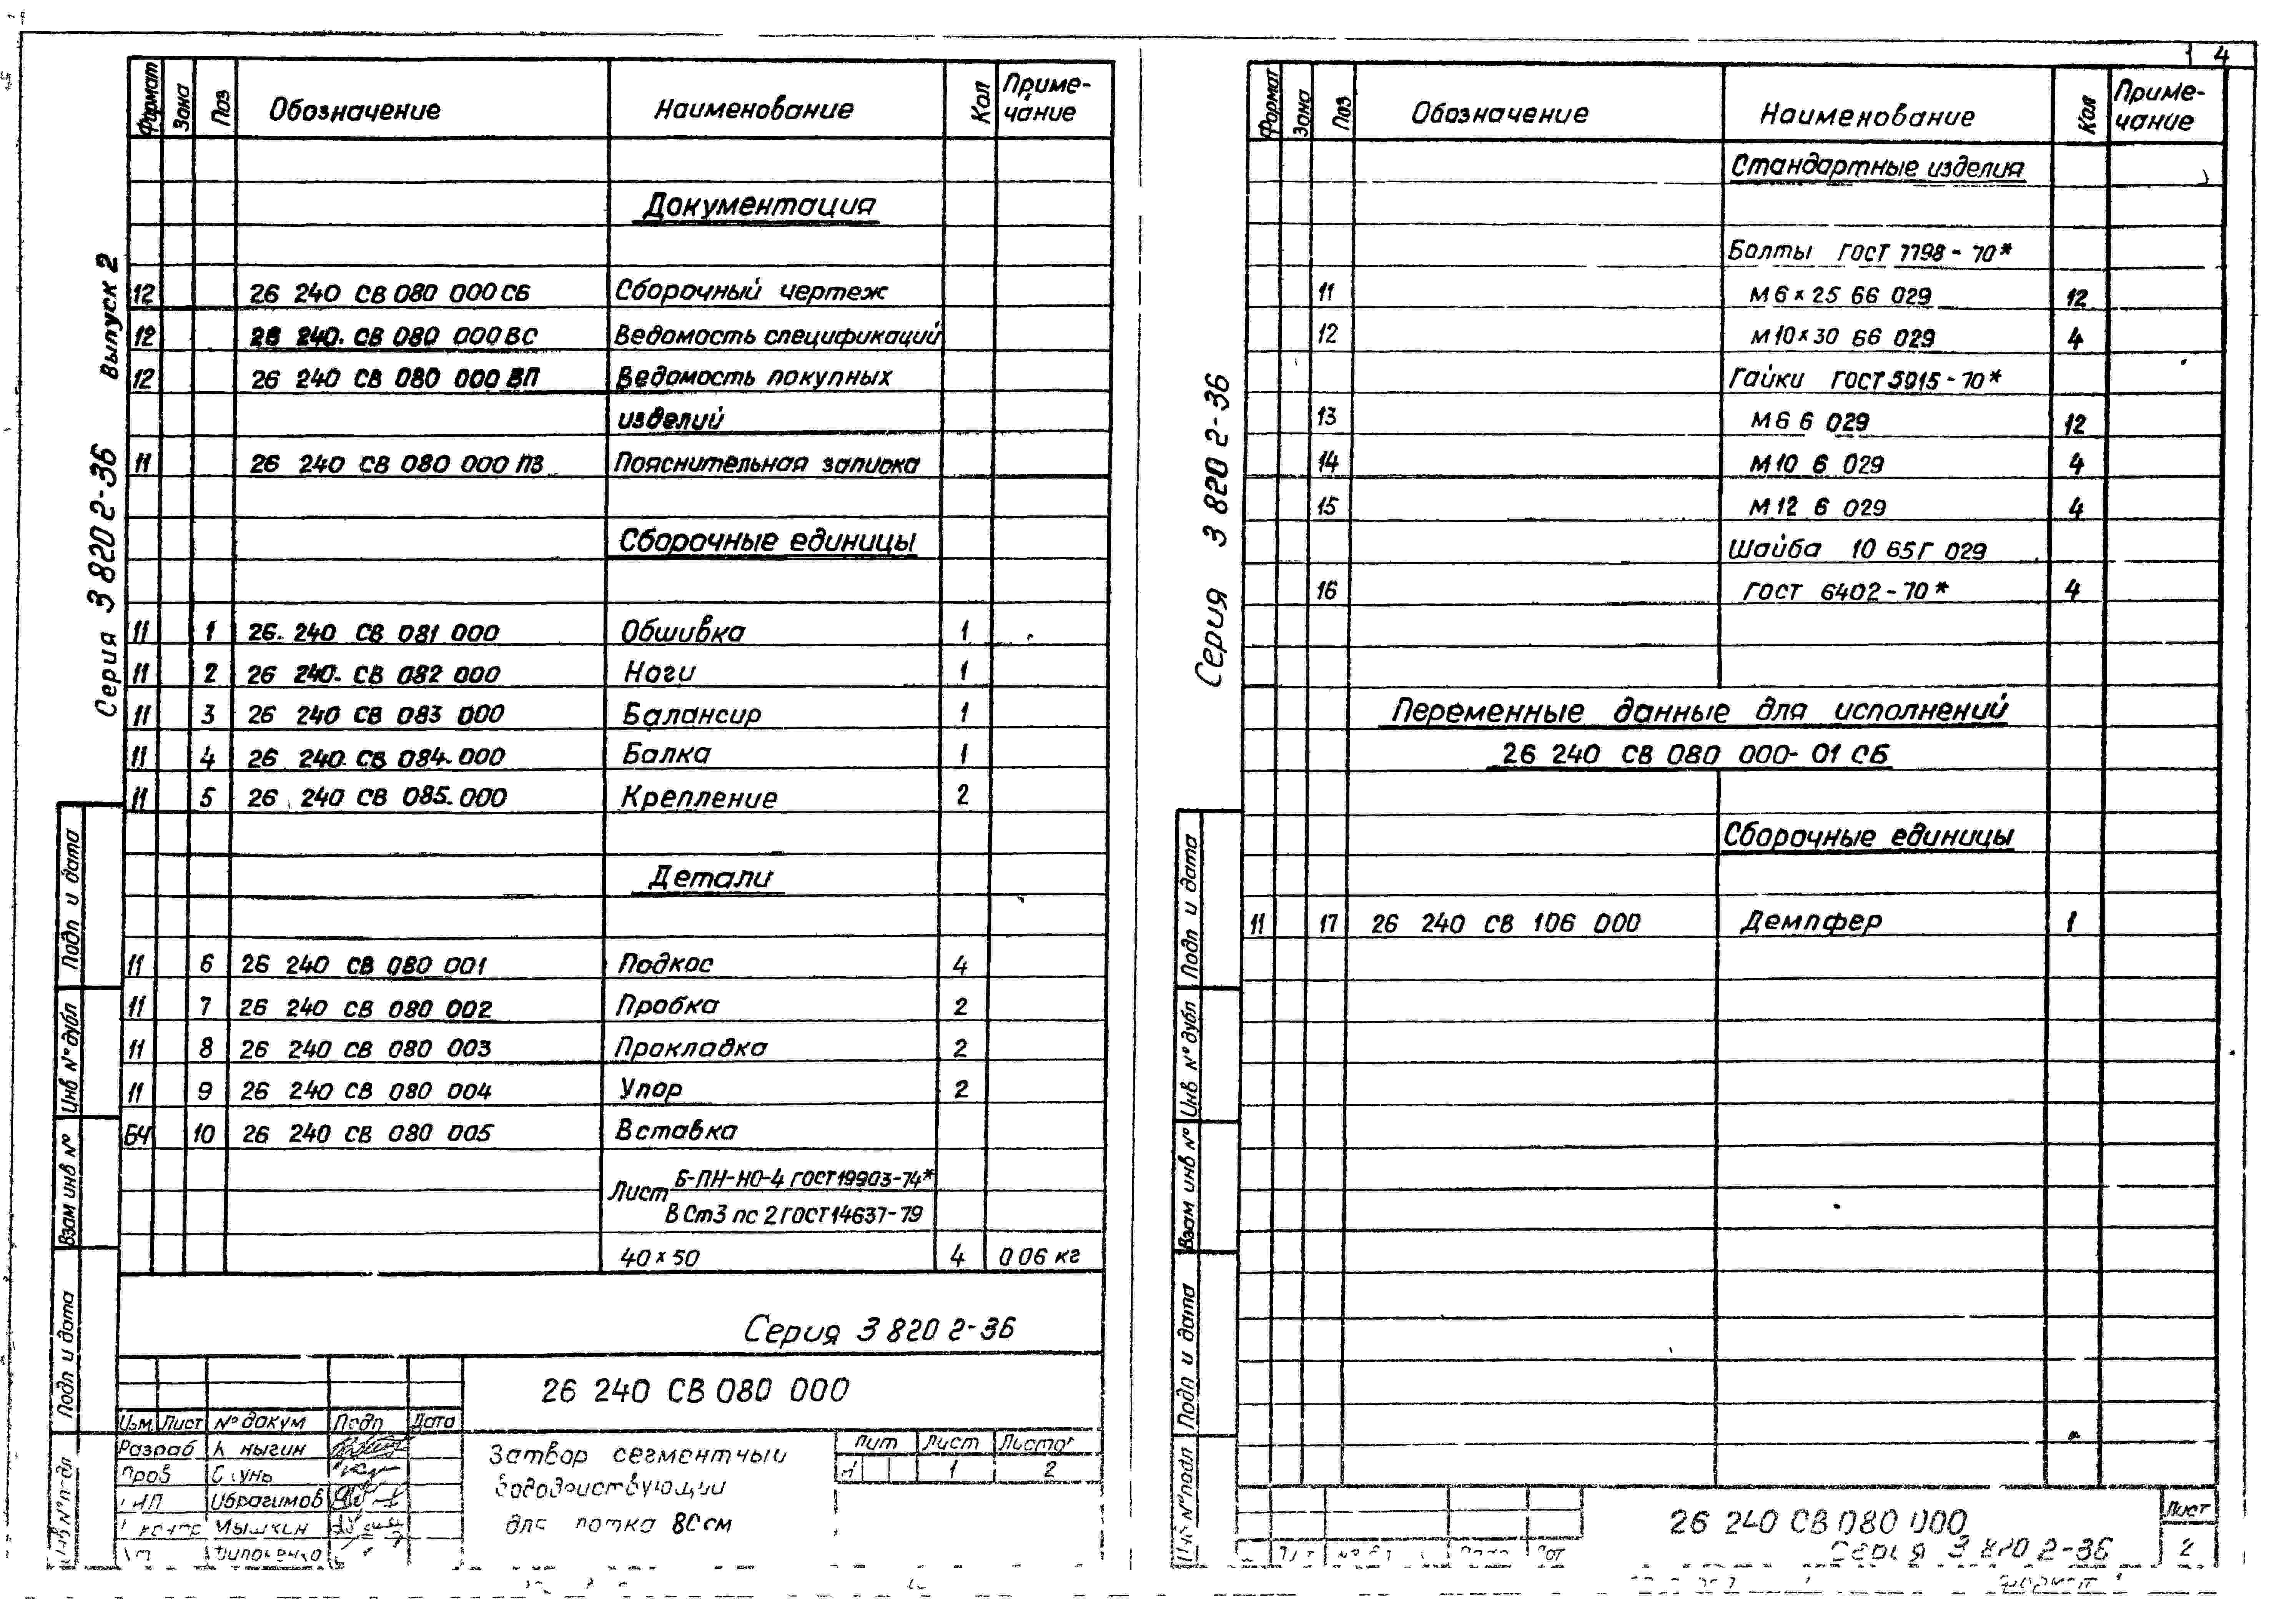 4
Серия 3 820 2-36 выпуск 2
Формат Зона Поз Обозначение Наименование Кол Приме-
чание
Документация
12 26 240 СВ 080 000 СБ Сборочный чертеж
12 26 240. СВ 080 000 ВС Ведомость спецификаций
12 26 240 СВ 080 000 ВП Ведомость покупных
изделий
11 26 240 СВ 080 000 ПЗ Пояснительная записка
Сборочные единицы
11 1 26. 240 СВ 081 000 Обшивка 1
11 2 26 240. СВ 082 000 Ноги 1
11 3 26 240 СВ 083 000 Балансир 1
11 4 26 240. СВ 084.000 Балка 1
11 5 26 240 СВ 085.000 Крепление 2
Детали
11 6 26 240 СВ 080 001 Подкос 4
11 7 26 240 СВ 080 002 Пробка 2
11 8 26 240 СВ 080 003 Прокладка 2
11 9 26 240 СВ 080 004 Упор 2
БЧ 10 26 240 СВ 080 005 Вставка
Лист Б-ПН-НО-4 ГОСТ 19903-74*
В Ст3 пс 2 ГОСТ 14637-79
40 х 50 4 0 06 кг
Серия 3 820 2-36
26 240 СВ 080 000
Изм Лист № докум Подп Дата
Разраб
Пров
Ибрагимов
Мышкин
Затвор сегментный
вододействующий
для лотка 80 см
Лит Лист Листов
1 2
Подп и дата
Инв № дубл
Взам инв №
Подп и дата
Инв № подл
Серия 3 820 2-36
Формат Зона Поз Обозначение Наименование Кол Приме-
чание
Стандартные изделия
Болты ГОСТ 7798-70*
11 М 6 х 25 66 029 12
12 М 10 х 30 66 029 4
Гайки ГОСТ 5915-70*
13 М 6 6 029 12
14 М 10 6 029 4
15 М 12 6 029 4
Шайба 10 65Г 029
16 ГОСТ 6402-70* 4
Переменные данные для исполнений
26 240 СВ 080 000-01 СБ
Сборочные единицы
11 17 26 240 СВ 106 000 Демпфер 1
Подп и дата
Инв № дубл
Взам инв №
Подп и дата
Инв № подл
26 240 СВ 080 000
Серия 3 820 2-36
Лист
2
Формат